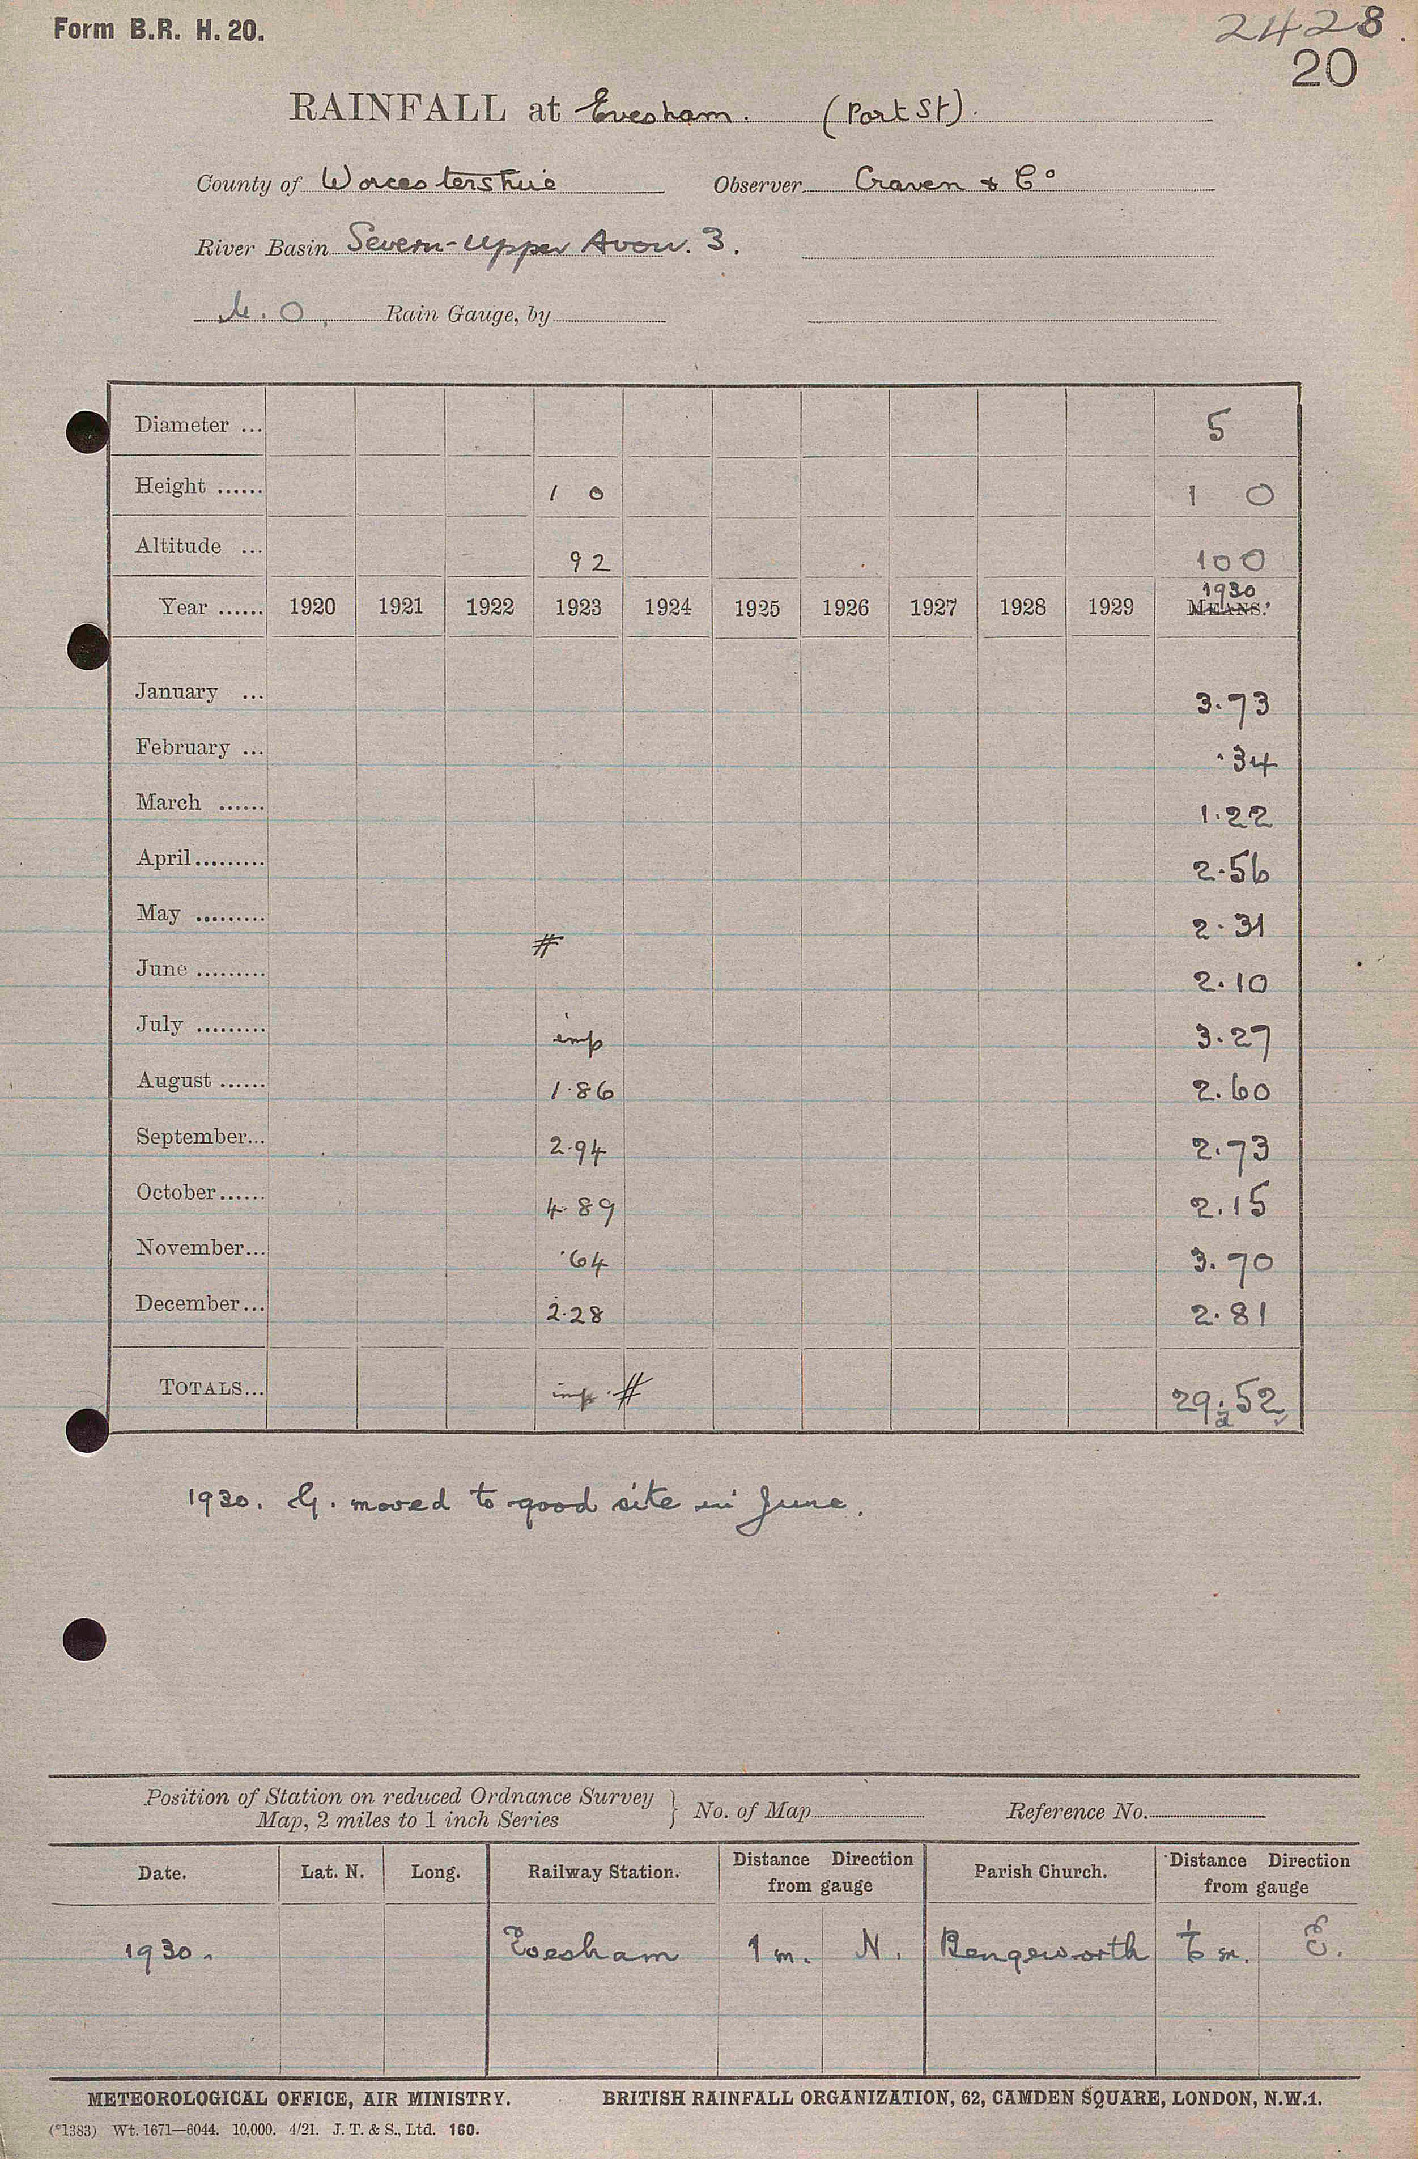 Form B.R. H. 20.
2428.
20
RAINFALL at Evesham. (Port St).
County of Worcestershire Observer Craven & Co
River Basin Severn-Upper Avon. 3.
M.O. Rain Gauge, by
Diameter ... 5
Height ...... 1 0 1 0
Altitude ... 92 100
1930
Year ...... 1920 1921 1922 1923 1924 1925 1926 1927 1928 1929 MEANS.
January ... 3.73
February ... .34
March ...... 1.22
April......... 2.56
May ......... 2.31
#
June ......... 2.10
July ......... imp 3.27
August ...... 1.86 2.60
September... 2.94 2.73
October...... 4.89 2.15
November... .64 3.70
December... 2.28 2.81
TOTALS... imp. # 29.52
1930. G. moved to good site in June.
Position of Station on reduced Ordnance Survey
Map, 2 miles to 1 inch Series } No. of Map Reference No.
Date. Lat. N. Long. Railway Station. Distance Direction from gauge Parish Church. Distance Direction from gauge
1930. Evesham 1 m. N. Bengeworth 1/6 m. E.
METEOROLOGICAL OFFICE, AIR MINISTRY. BRITISH RAINFALL ORGANIZATION, 62, CAMDEN SQUARE, LONDON, N.W.1.
(*1383) Wt. 1671—6044. 10,000. 4/21. J. T. & S., Ltd. 160.